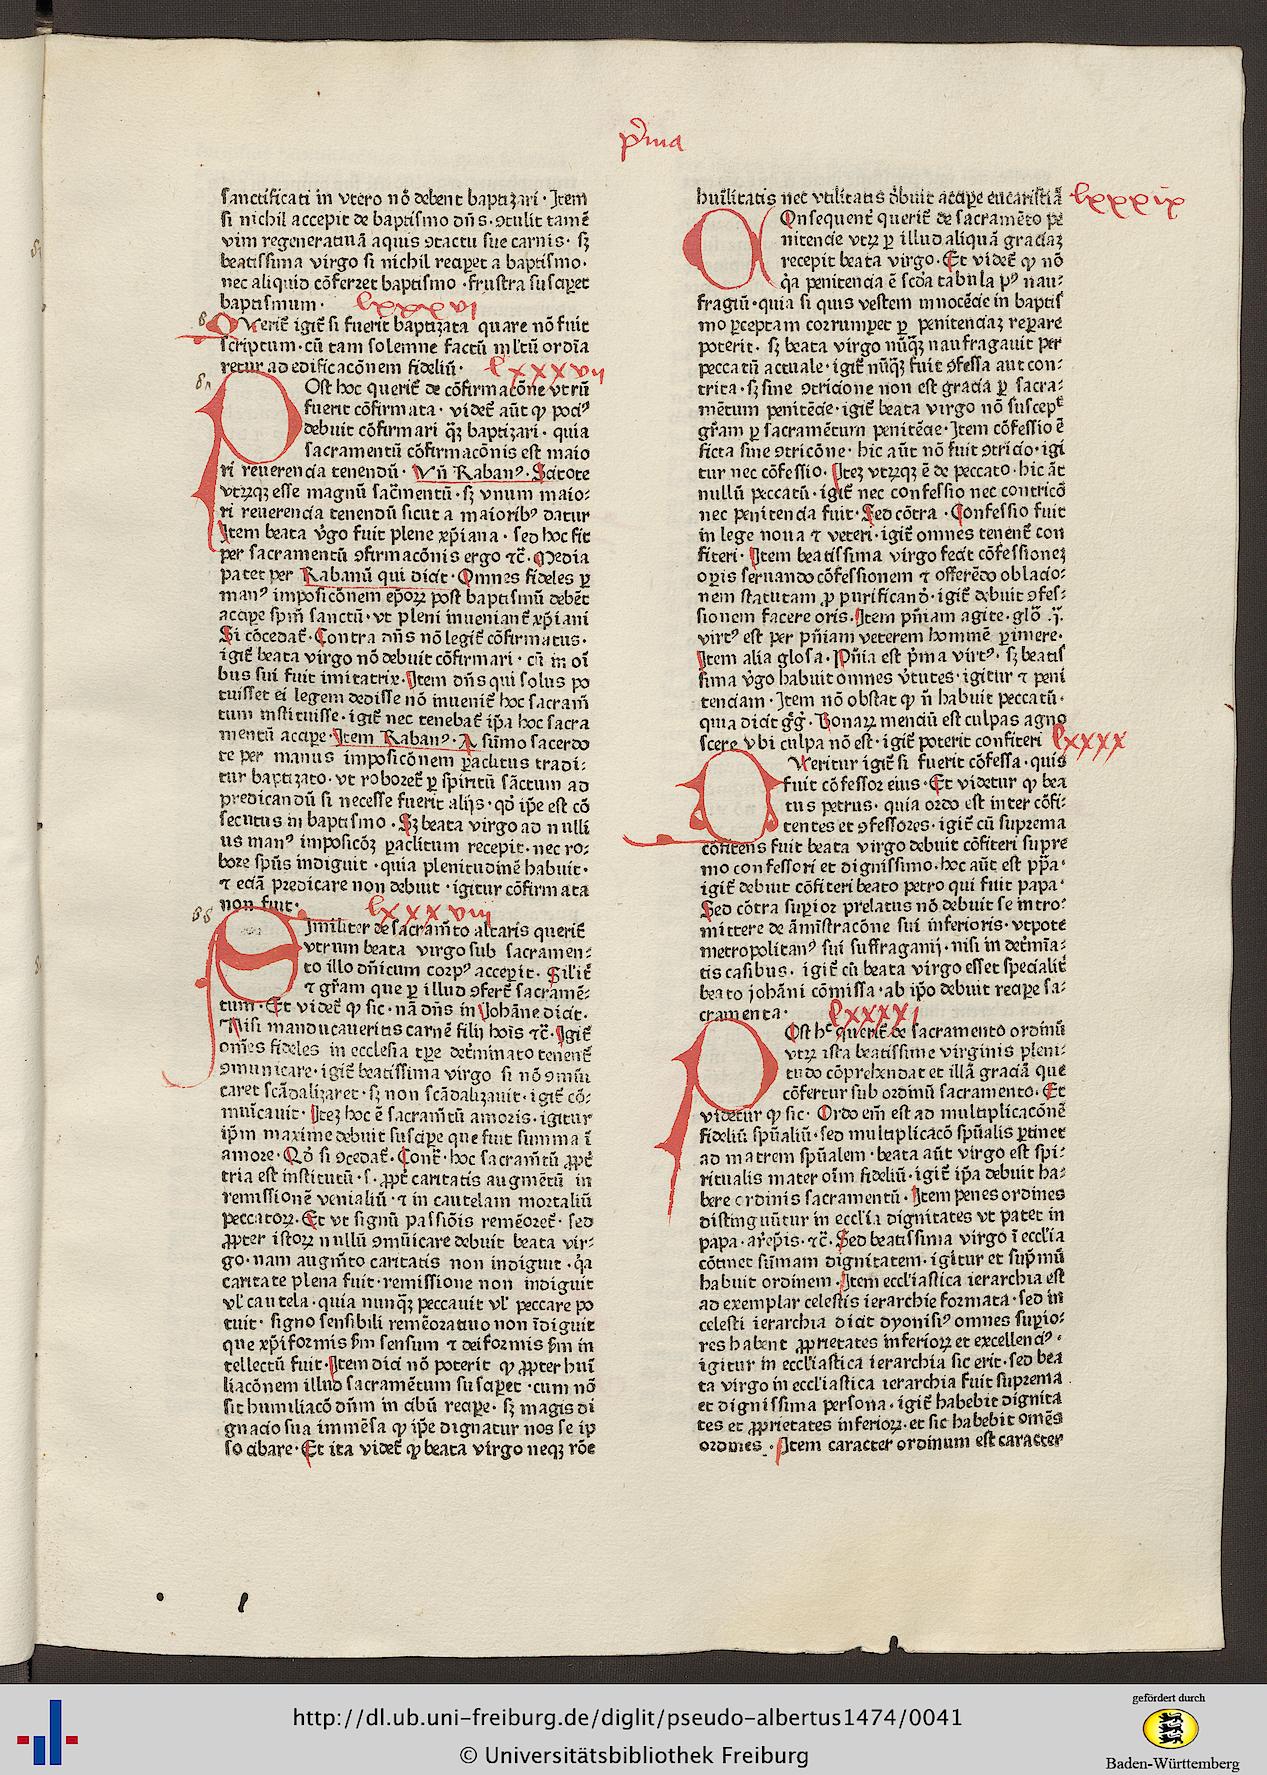 p̄ma
sanctificati in vtero nō debent baptizari · Item
si nichil accepit de baptismo dñs · ꝯtulit tamē
vim regeneratiuā aquis ꝯtactu sue carnis · sꝫ
beatissima virgo si nichil reciperet a baptismo ·
nec aliquid cōferret baptismo · frustra susciperet
baptismum · lxxxvi
Querit̄ igit̄ si fuerit baptizata quare nō fuit
scriptum · cū tam solemne factū mltū ordīa
retur ad edificacōnem fideliū · lxxxvii
Post hoc querit̄ de cōfirmacōne vtrū
fuerit cōfirmata · videt̄ aūt ꝙ pociꝰ
debuit cōfirmari q̄ꝫ baptizari · quia
sacramentū cōfirmacōnis est maio
ri reuerencia tenendū · Vñ Rabanꝰ · Scitote
vtrūqꝫ esse magnū sac̄mentū · sꝫ vnum maio⸗
ri reuerencia tenendū sicut a maioribꝰ datur
Item beata v̄go fuit plene xp̄iana · sed hoc fit
per sacramentū ꝯfirmacōnis ergo ⁊c̄ · Media
patet per Rabanū qui dicit · Omnes fideles ꝑ
manꝰ imposicōnem ep̄oꝝ post baptismū debēt
accipe spm̄ sanctū · vt pleni inueniant̄ xp̄iani
Si cōcedat̄ · Contra dñs nō legit̄ cōfirmatus ·
igit̄ beata virgo nō debuit cōfirmari · cū in oī
bus sui fuit imitatrix · Item dñs qui solus po
tuisset ei legem dedisse nō inuenit̄ hoc sacram̄
tum instituisse · igit̄ nec tenebat̄ ip̄a hoc sacra
mentū accipe · Item Rabanꝰ · A sūmo sacerdo
te per manus imposicōnem ꝑaclitus tradi⸗
tur baptizato · vt roboret̄ ꝑ spiritū sāctum ad
predicandū si necesse fuerit alijs · qd̄ ip̄e est cō
secutus in baptismo · Sꝫ beata virgo ad nulli
us manꝰ imposicōꝫ ꝑaclitum recepit · nec ro⸗
bore sp̄us indiguit · quia plenitudinē habuit ·
⁊ eciā predicare non debuit · igitur cōfirmata
non fuit · lxxxviii
Similiter de sacram̄to altaris querit̄
vtrum beata virgo sub sacramen⸗
to illo dñicum corpꝰ acceperit · Sil'it̄
⁊ gr̄am que ꝑ illud ꝯfert̄ sacramē⸗
tum · Et videt̄ ꝙ sic · nā dñs in Johāne dicit ·
Nisi manducaueritis carnē filij hoīs ⁊c̄ · Igit̄
om̄es fideles in ecclesia tꝑe det̄minato tenent̄
ꝯmunicare · igit̄ beatissima virgo si nō ꝯmūi
caret scādalizaret · sꝫ non scādalizauit · igit̄ cō⸗
muīcauit · Iteꝫ hoc ē sacram̄tū amoris · igitur
ip̄m maxime debuit suscipe que fuit summa ī
amore · Qd̄ si ꝯcedat̄ · Cont̄ · hoc sacram̄tū ꝓpt̄
tria est institutū · s · ꝓpt̄ caritatis augmētū in
remissionē venialiū · ⁊ in cautelam mortaliū
peccatoꝝ · Et vt signū passiōis remēoret̄ · sed
ꝓpter istoꝝ nullū ꝯmūicare debuit beata vir⸗
go · nam augm̄to caritatis non indiguit · q̄a
caritate plena fuit · remissione non indiguit
vl' cautela · quia nunq̄ꝫ peccauit vl' peccare po
tuit · signo sensibili remēoratiuo non īdiguit
que xp̄iformis ẜm sensum ⁊ deiformis ẜm in
tellectū fuit · Item dici nō poterit ꝙ ꝓpter huī
liacōnem illud sacramētum susciperet · cum nō
sit humiliacō dn̄m in cibū recipe · sꝫ magis di
gnacio sua immēsa ꝙ ip̄e dignatur nos se ip̄
so cibare · Et ita videt̄ ꝙ beata virgo neqꝫ rōe
huīlitatis nec vtilitatis debuit accipe eucaristiā lxxxix
Consequent̄ querit̄ de sacramēto pe
nitencie vtꝝ ꝑ illud aliquā graciaꝫ
recepit beata virgo · Et videt̄ ꝙ nō
q̄a penitencia ē scd̄a tabula pꝰ nau⸗
fragiū · quia si quis vestem innocēcie in baptis
mo ꝑceptam corrumperet ꝑ penitenciaꝫ reparare
poterit · sꝫ beata virgo nūq̄ꝫ naufragauit per
peccatū actuale · igit̄ nūq̄ꝫ fuit ꝯfessa aut con⸗
trita · sꝫ sine ꝯtricione non est gracia ꝑ sacra⸗
mētum penitēcie · igit̄ beata virgo nō suscepit
gr̄am ꝑ sacramētum penitēcie · Item cōfessio ē
ficta sine ꝯtricōne · hic aūt nō fuit ꝯtricio · igi
tur nec cōfessio · Iteꝫ vtꝝqꝫ ē de peccato · hic āt
nullū peccatū · igit̄ nec confessio nec contricō
nec penitencia fuit · Sed cōtra · Confessio fuit
in lege noua ⁊ veteri · igit̄ omnes tenent̄ con
fiteri · Item beatissima virgo fecit cōfessioneꝫ
oꝑis seruando cōfessionem ⁊ offerēdo oblacio⸗
nem statutam ꝓ purificand̄ · igit̄ debuit ꝯfes⸗
sionem facere oris · Item pn̄iam agite · glo · j ·
virtꝰ est per pn̄iam veterem hominē ꝑimere ·
Item alia glosa · Pn̄ia est p̄ma virtꝰ · sꝫ beatis
sima v̄go habuit omnes v̄tutes · igitur ⁊ peni
tenciam · Item nō obstat ꝙ n̄ habuit peccatū ·
quia dicit g̃g̃ · Bonaꝝ menciū est culpas agno
scere vbi culpa nō est · igit̄ poterit confiteri lxxxx
Queritur igit̄ si fuerit cōfessa · quis
fuit cōfessor eius · Et videtur ꝙ bea
tus petrus · quia ordo est inter cōfi⸗
tentes et ꝯfessores · igit̄ cū suprema
cōfitens fuit beata virgo debuit cōfiteri supre
mo confessori et dignissimo · hoc aūt est pp̄a ·
igit̄ debuit cōfiteri beato petro qui fuit papa ·
Sed cōtra superior prelatus nō debuit se intro⸗
mittere de am̄istracōne sui inferioris · vtpote
metropolitanꝰ sui suffraganij · nisi in det̄mīa⸗
tis casibus · igit̄ cū beata virgo esset specialit̄
beato johāni cōmissa · ab ip̄o debuit recipe sa⸗
cramenta · lxxxxi
Post hͨ querit̄ de sacramento ordinū
vtꝝ ista beatissime virginis pleni⸗
tudo cōprehendat et illā graciā que
cōfertur sub ordinū sacramento · Et
videtur ꝙ sic · Ordo em̄ est ad multiplicacōnē
fideliū spūaliū · sed multiplicacō spūalis ꝑtinet
ad matrem spūalem · beata aūt virgo est spi⸗
ritualis mater oīm fideliū · igit̄ ip̄a debuit ha⸗
bere ordinis sacramentū · Item penes ordines
distinguūtur in eccl'ia dignitates vt patet in
papa · arep̄is · ⁊c̄ · Sed beatissima virgo ī eccl'ia
cōtinet sūmam dignitatem · igitur et sup̄mū
habuit ordinem · Item eccl'iastica ierarchia est
ad exemplar celestis ierarchie formata · sed in
celesti ierarchia dicit dyonisiꝰ omnes suꝑio⸗
res habent ꝓprietates inferioꝝ et excellenciꝰ ·
igitur in eccl'iastica ierarchia sic erit · sed bea
ta virgo in eccl'iastica ierarchia fuit suprema
et dignissima persona · igit̄ habebit dignita
tes et ꝓprietates inferioꝝ · et sic habebit omēs
ordines · Item caracter ordinum est caracter
http://dl.ub.uni-freiburg.de/diglit/pseudo-albertus1474/0041
© Universitätsbibliothek Freiburg
gefördert durch
Baden-Württemberg